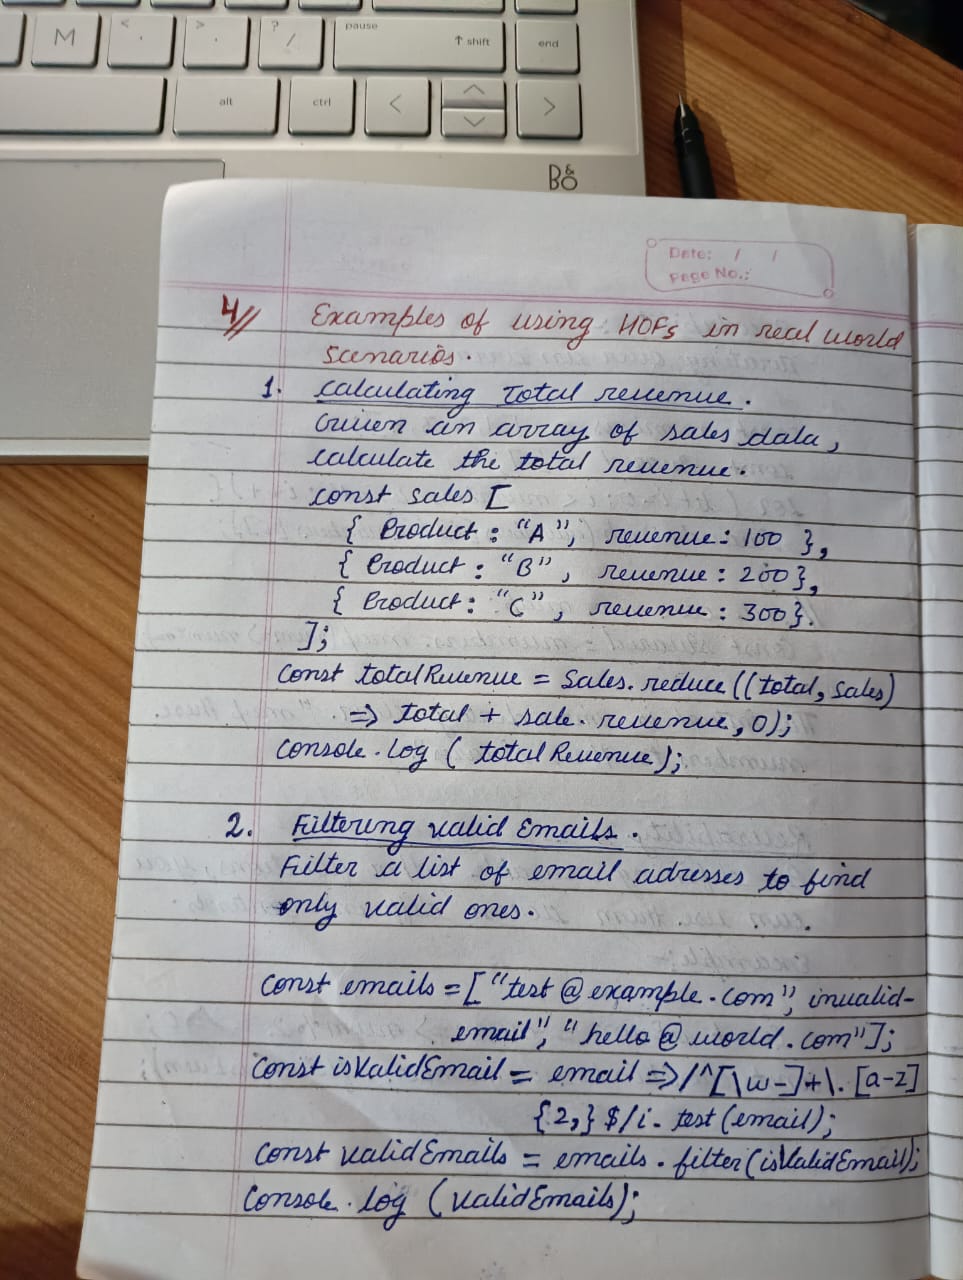 M < , > . ? / pause ↑ shift end
alt ctrl < ^ >
B&O
Date: / /
Page No.:
4// Examples of using HOFs in real world
scenarios.
1. calculating Total revenue.
Given an array of sales data,
calculate the total revenue.
const sales [
{ Product : "A", revenue: 100 },
{ Product : "B", revenue : 200},
{ Product : "C", revenue : 300}.
];
Const totalRevenue = Sales. reduce ((total, sales)
=> total + sale. revenue, 0);
Console.log ( totalRevenue );
2. Filtering valid Emails.
Filter a list of email adresses to find
only valid ones.
Const emails = ["test@example.com", invalid-
email", "hello@world.com"];
Const isValidEmail = email => /^[\w-]+\. [a-z]
{2,}$/i. test (email);
Const validEmails = emails. filter (isValidEmail);
Console.log (validEmails);